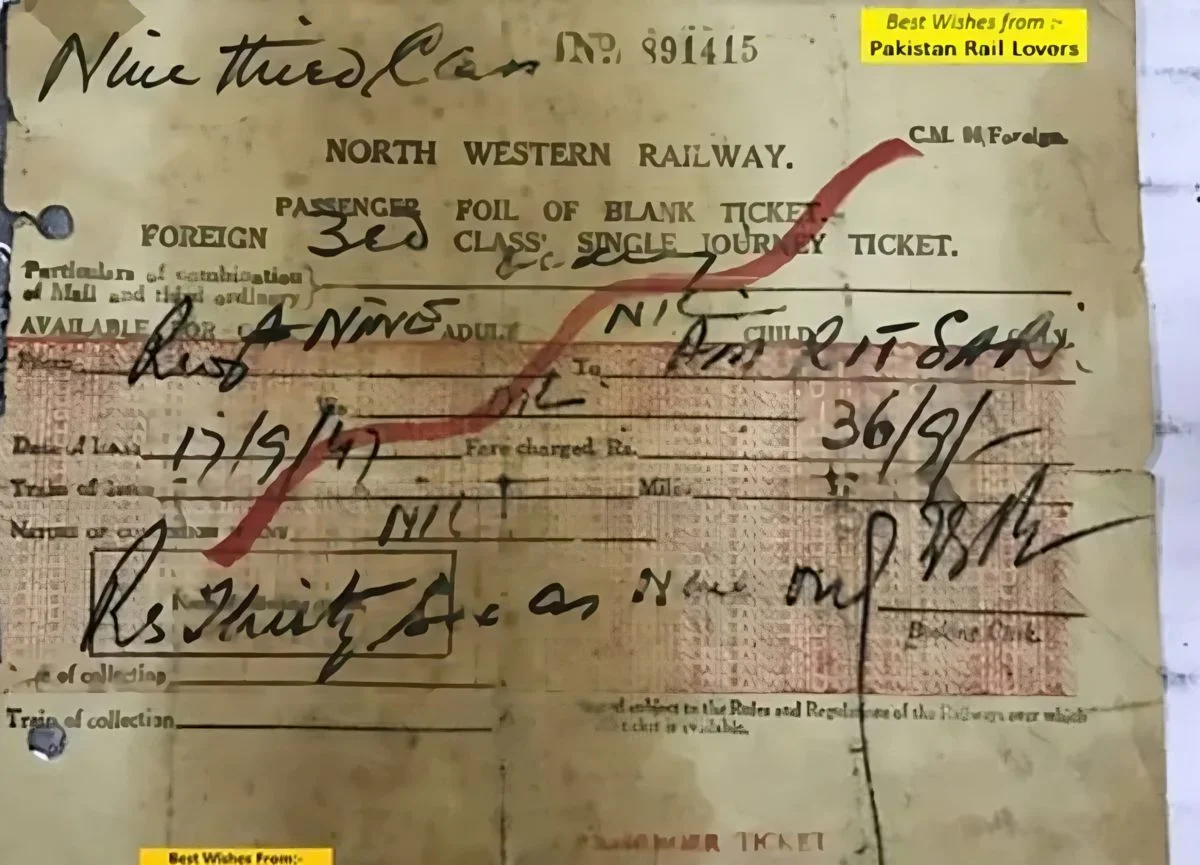 Best Wishes from :-
Pakistan Rail Lovors
Nine third Class No. 891415
C.M. M, Foreign
NORTH WESTERN RAILWAY.
PASSENGER FOIL OF BLANK TICKET.
FOREIGN 3rd CLASS SINGLE JOURNEY TICKET.
Particulars of combination
of Mail and third ordinary
AVAILABLE FOR A-NINE ADULT NIL CHILD
To AMRITSAR
Via NIL
Date of Issue 17/9/47 Fare charged Rs. 36/9/-
Train of Issue Miles
NIL
Rs Thirty Six as Nine only
Booking Clerk
of collection
Train of collection
subject to the Rules and Regulations of the Railways over which
ticket is available.
PASSENGER TICKET
Best Wishes From:-